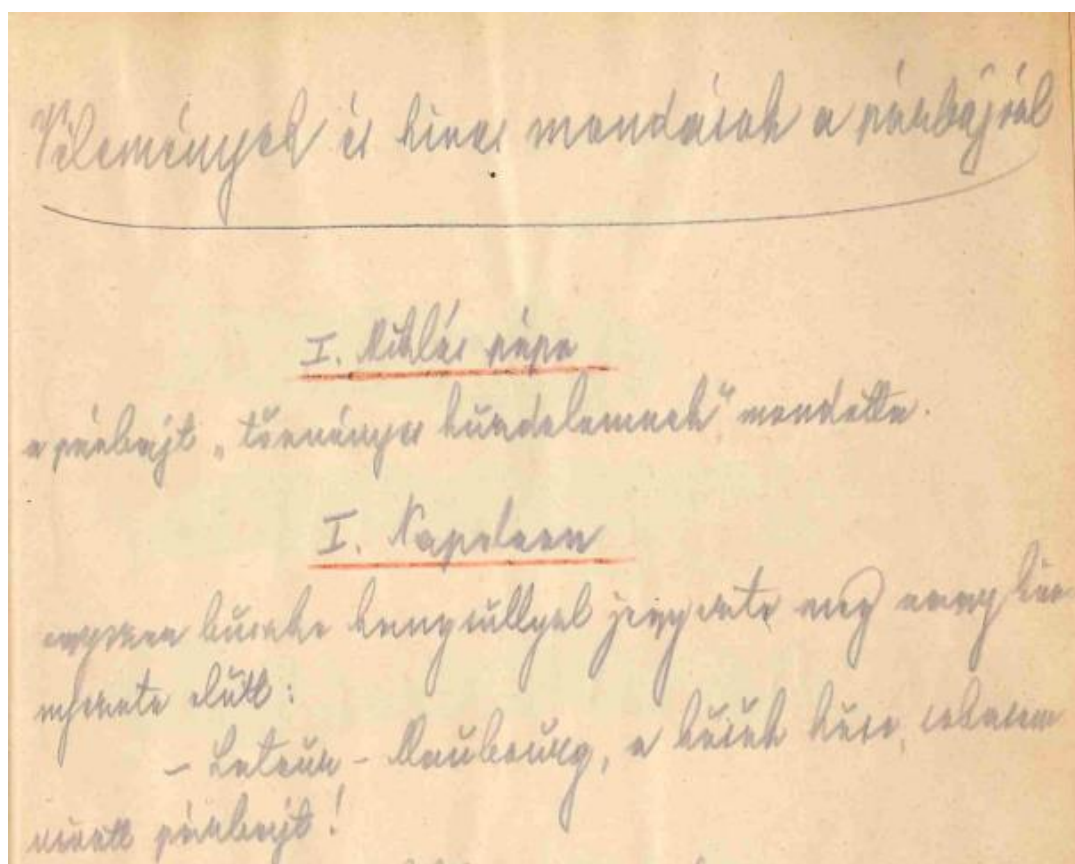 Vélemények és hires mondások a párbajról
I. Miklós pápa
a párbajt „törvényes küzdelemnek" mondotta.
I. Napoleon
egyszer büszke hangsúllyal jegyezte meg nagy kör-
nyezete előtt:
– Latour-Maubourg, a hősök hőse, sohasem
vívott párbajt!